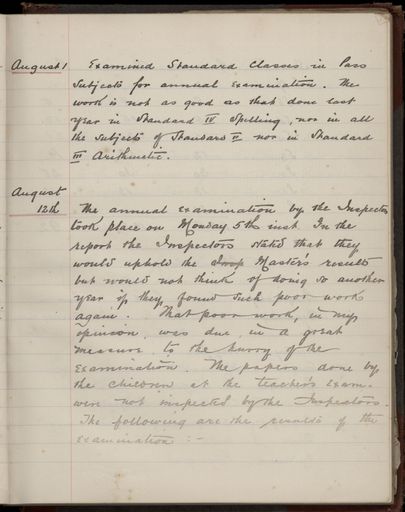 August 1 Examined Standard Classes in Pass
Subjects for annual Examination. The
work is not as good as that done last
year in Standard IV Spelling, nor in all
the subjects of Standard II nor in Standard
III Arithmetic.
August
12th The annual Examination by the Inspectors
took place on Monday 5th inst. In the
report the Inspectors stated that they
would uphold the Master's results
but would not think of doing so another
year if they found such poor work
again. That poor work, in my
opinion, was due, in a great
measure to the hurry of the
Examination. The papers done by
the children at the teacher's Exam.
were not inspected by the Inspectors.
The following are the results of the
Examination :-